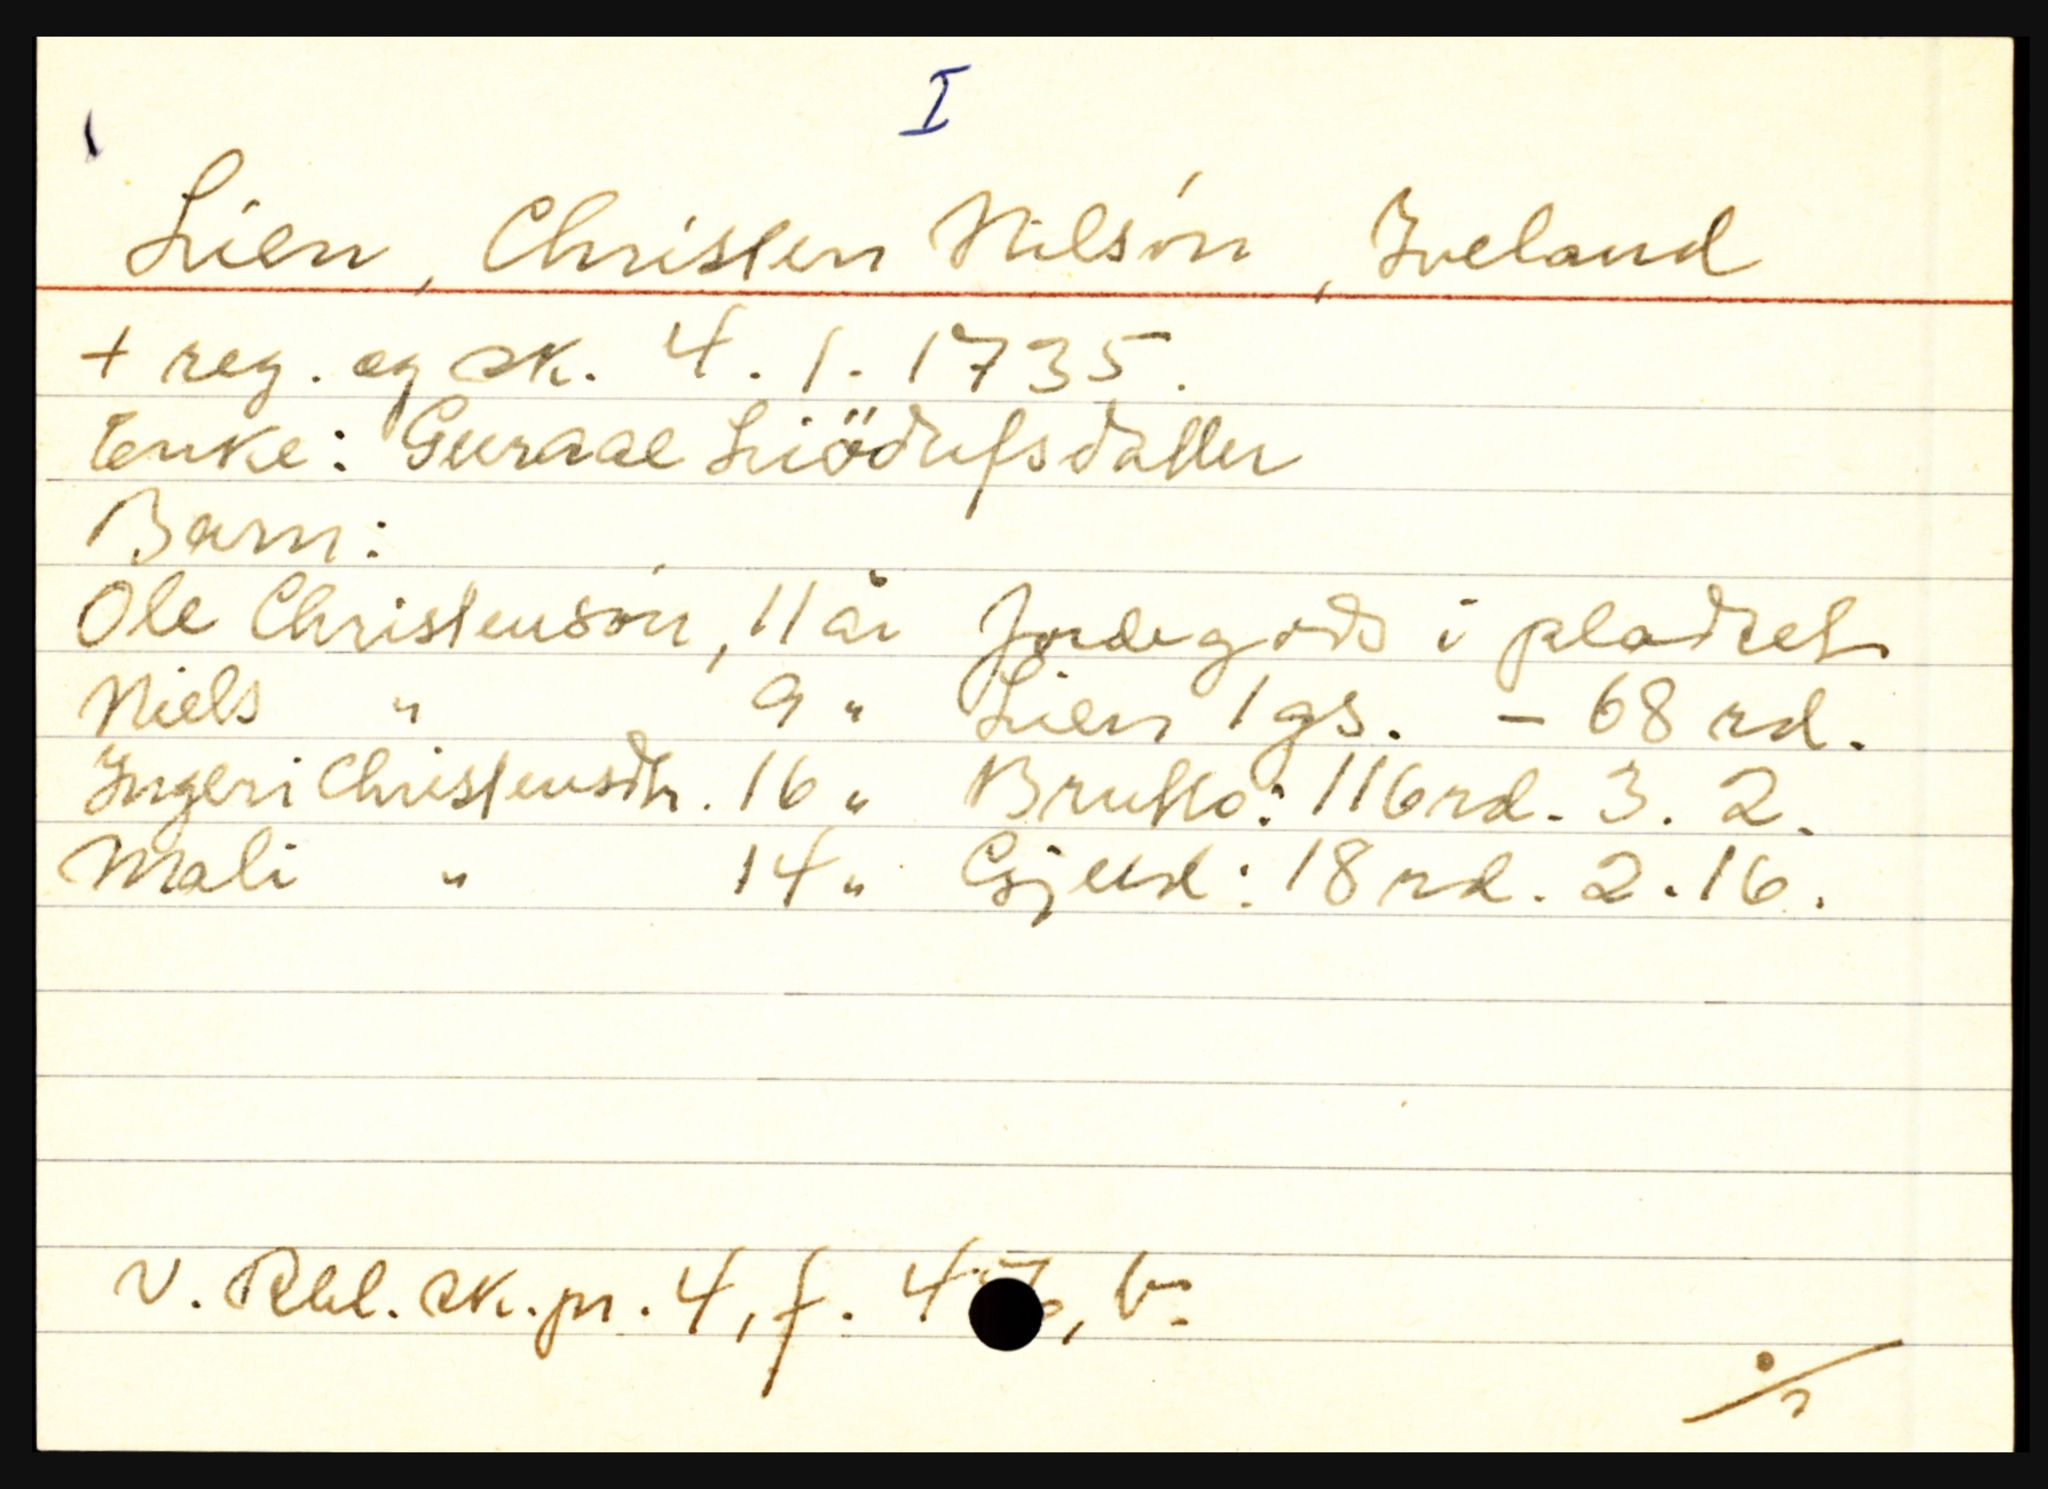 I
Lien, Christen Nilsón, Iveland
+ reg. og sk. 4.1.1735.
Enke: Guraae Liödufsdatter
Barn:
Ole Christensón, 11 år Jordegods i pladset
Niels " 9 " Lien 1 gs. - 68 rd.
Ingeri Christensdtr. 16 " Brutto: 116 rd. 3. 2.
Mali " 14 " Gjeld: 18 rd. 2.16.
v. Rbl. sk.pr. 4, f. 4 , b.